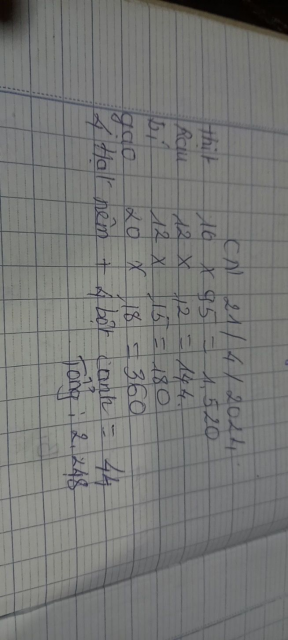 CN 21/4/2024
Thịt 16 x 95 = 1.520
Rau 12 x 12 = 144
Bí 12 x 15 = 180
gạo 20 x 18 = 360
1 Hạt nêm + 1 bột canh = 44
Tổng: 2.248